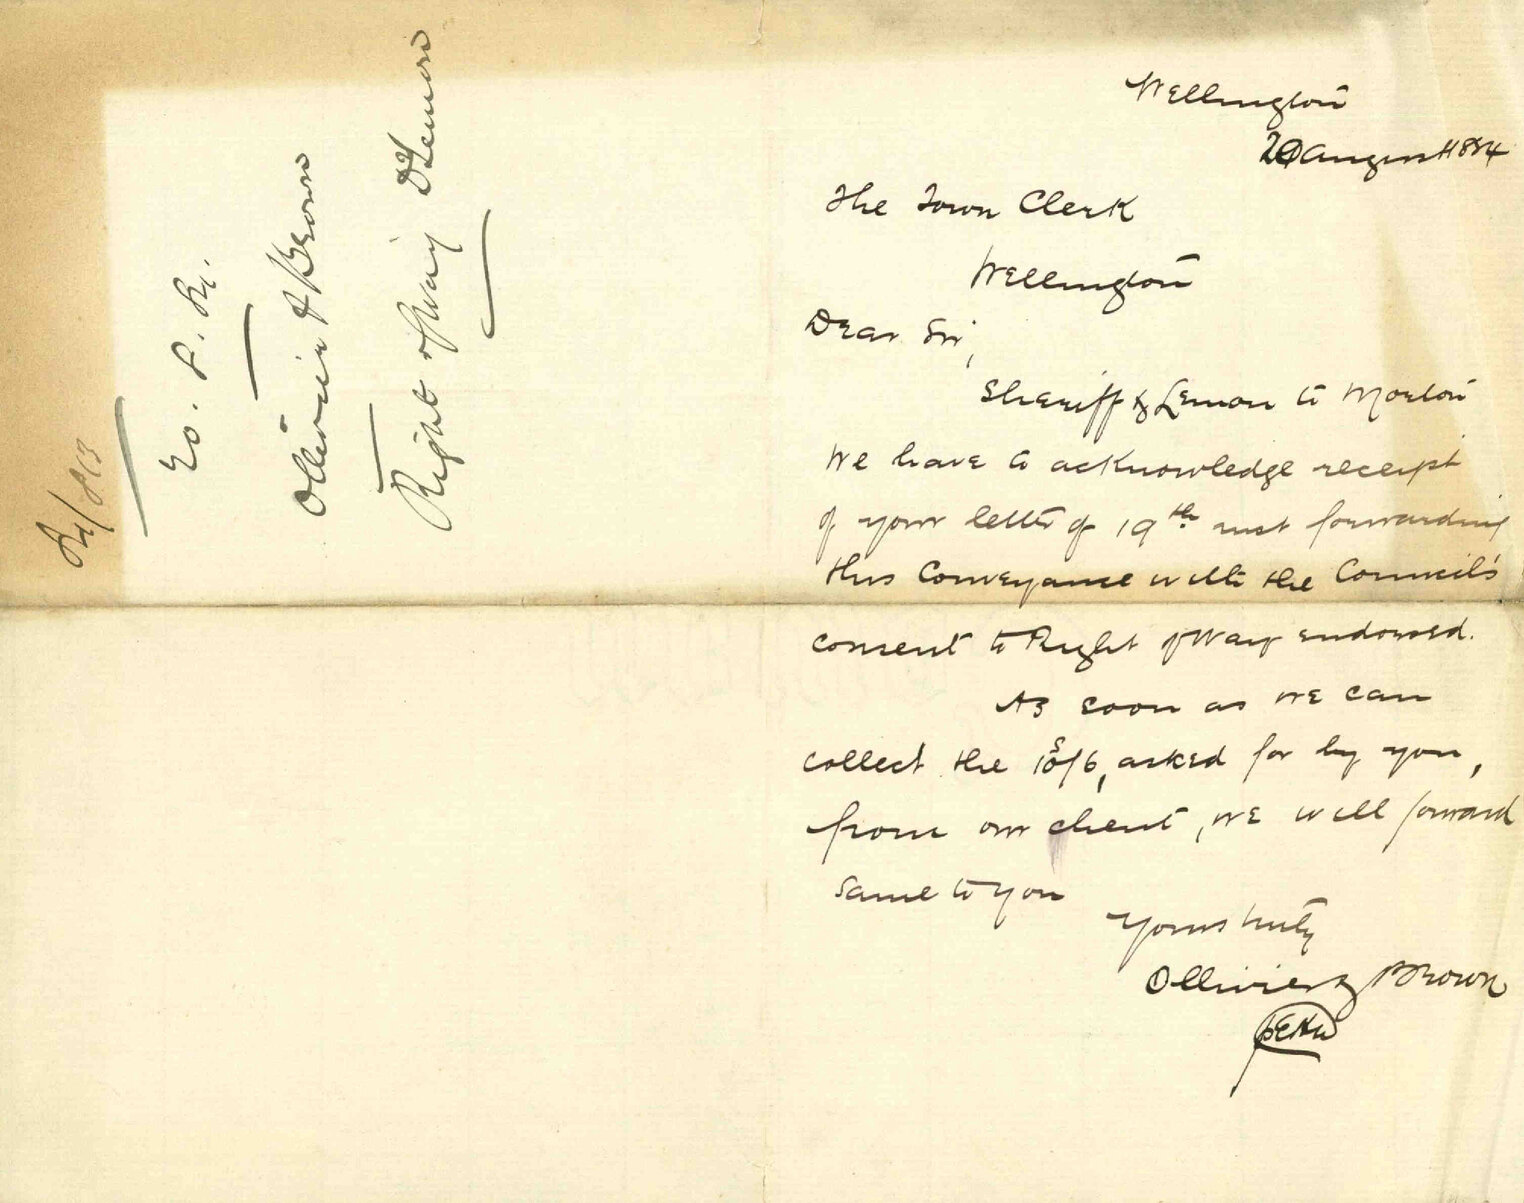 Wellington
20 August 1884
The Town Clerk
Wellington
Dear Sir,
Sheriff & Lemon to Morton
We have to acknowledge receipt
of your letter of 19th inst forwarding
this Conveyance with the Council's
consent to Right of Way endorsed.
As soon as we can
collect the 10s/6, asked for by you,
from our client, we will forward
same to you
Yours truly
Ollivier & Brown
Ollivier & Brown
Right of Way Dr Lemon